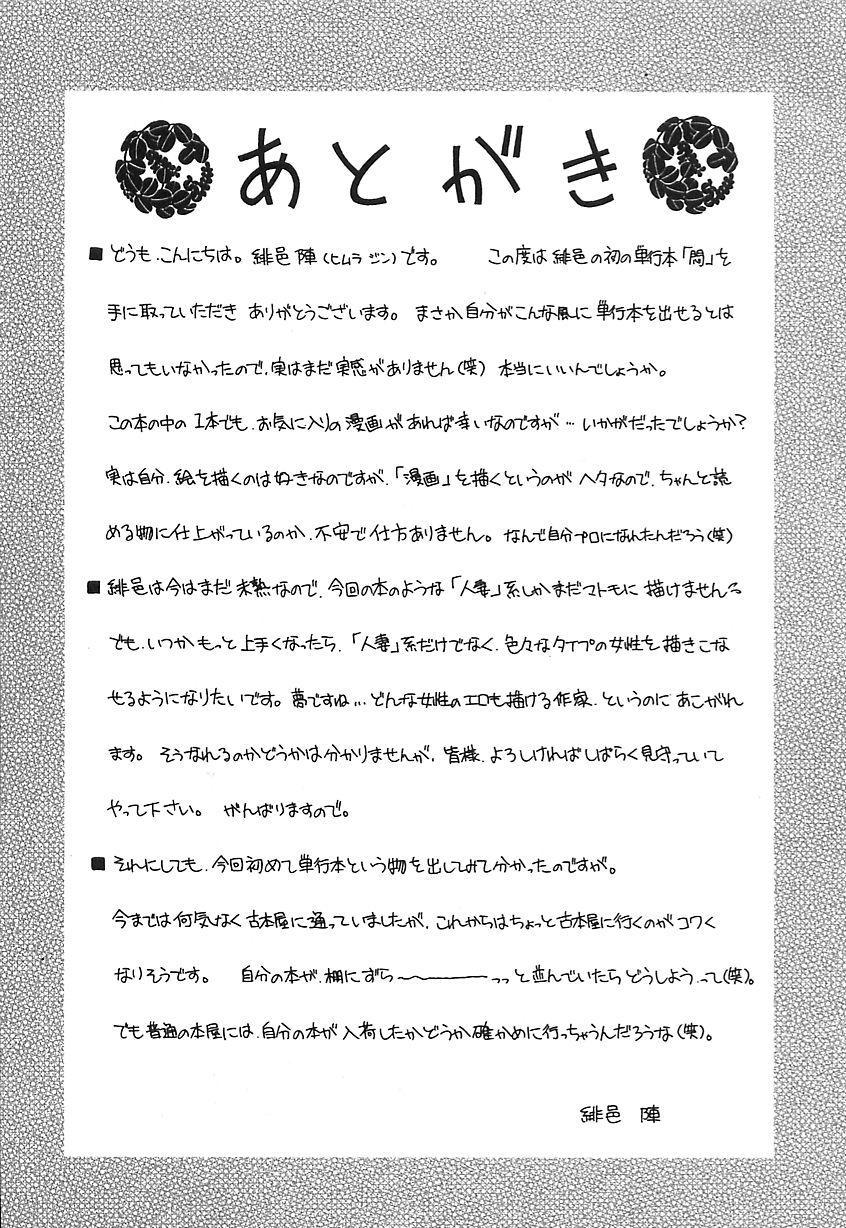 あとがき
■どうも、こんにちは。緋邑 陣(ヒムラ ジン)です。 この度は緋邑の初の単行本「悶」を
手に取っていただき ありがとうございます。 まさか自分がこんな風に単行本を出せるとは
思ってもいなかったので、実はまだ実感がありません(笑) 本当にいいんでしょうか。
この本の中の1本でも、お気に入りの漫画があれば幸いなのですが…いかがだったでしょうか?
実は自分、絵を描くのは好きなのですが、「漫画」を描くというのがヘタなので、ちゃんと読
める物に仕上がっているのか、不安で仕方ありません。なんで自分プロになれたんだろう(笑)
■緋邑は今はまだ未熟なので、今回の本のような「人妻」系しかまだマトモに描けません
でも、いつかもっと上手くなったら、「人妻」系だけでなく、色々なタイプの女性を描きこな
せるようになりたいです。夢ですね…どんな女性のエロも描ける作家、というのにあこがれ
ます。 そうなれるのかどうかは分かりませんが、皆様、よろしければしばらく見守っていて
やって下さい。 がんばりますので。
■それにしても、今回初めて単行本という物を出してみて分かったのですが。
今までは何気なく古本屋に通っていましたが、これからはちょっと古本屋に行くのがコワく
なりそうです。 自分の本が、棚にずら〜〜───っっと並んでいたらどうしよう、って(笑)。
でも普通の本屋には、自分の本が入荷したかどうか確かめに行っちゃうんだろうな(笑)。
緋邑 陣